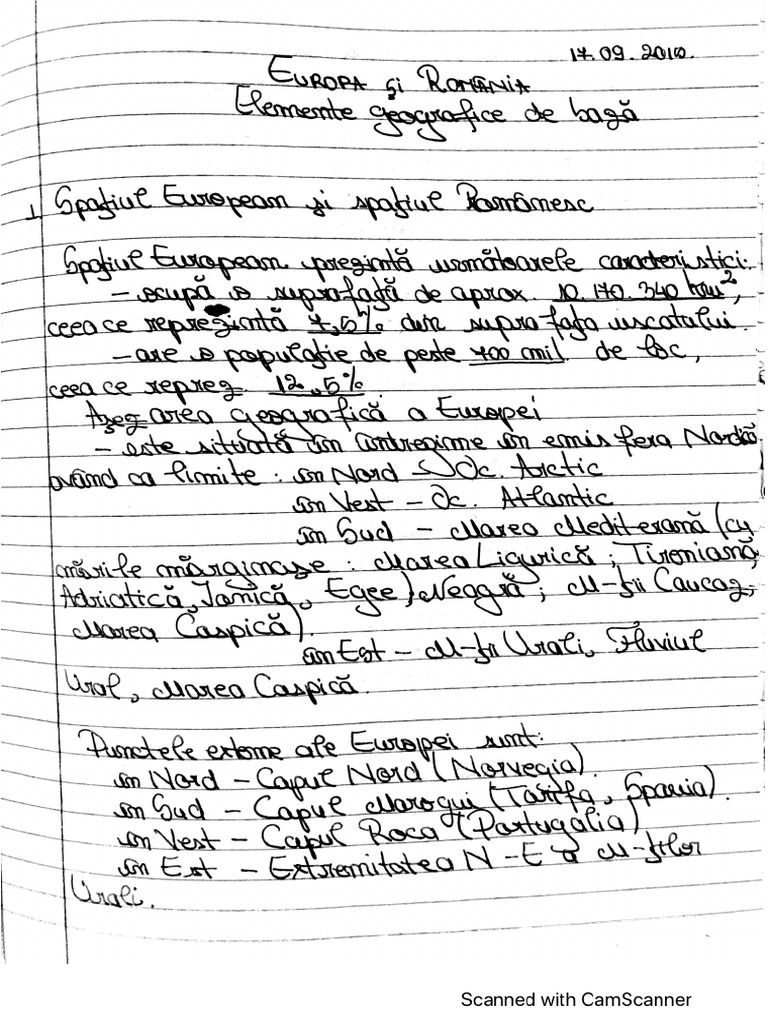 17.09.2010.
EUROPA și ROMÂNIA
Elemente geografice de bază
1. Spațiul European și spațiul Românesc
Spațiul European prezintă următoarele caracteristici:
- ocupă o suprafață de aprox. 10.170.340 km²,
ceea ce reprezintă 7,5% din suprafața uscatului.
- are o populație de peste 700 mil. de loc,
ceea ce reprez 12,5%.
Așezarea geografică a Europei
- este situată în întregime în emisfera Nordică
având ca limite: în Nord - Oc. Arctic
în Vest - Oc. Atlantic
în Sud - Marea Mediterană (cu
mările mărginașe: Marea Ligurică; Tireniană,
Adriatică, Ionică, Egee) Neagră; M-ții Caucaz;
Marea Caspică).
în Est - M-ții Urali, Fluviul
Ural, Marea Caspică.
Punctele extreme ale Europei sunt:
în Nord - Capul Nord (Norvegia).
în Sud - Capul Maroqui (Tarifa, Spania).
în Vest - Capul Roca (Portugalia)
în Est - Extremitatea N-E a M-ților
Urali.
Scanned with CamScanner